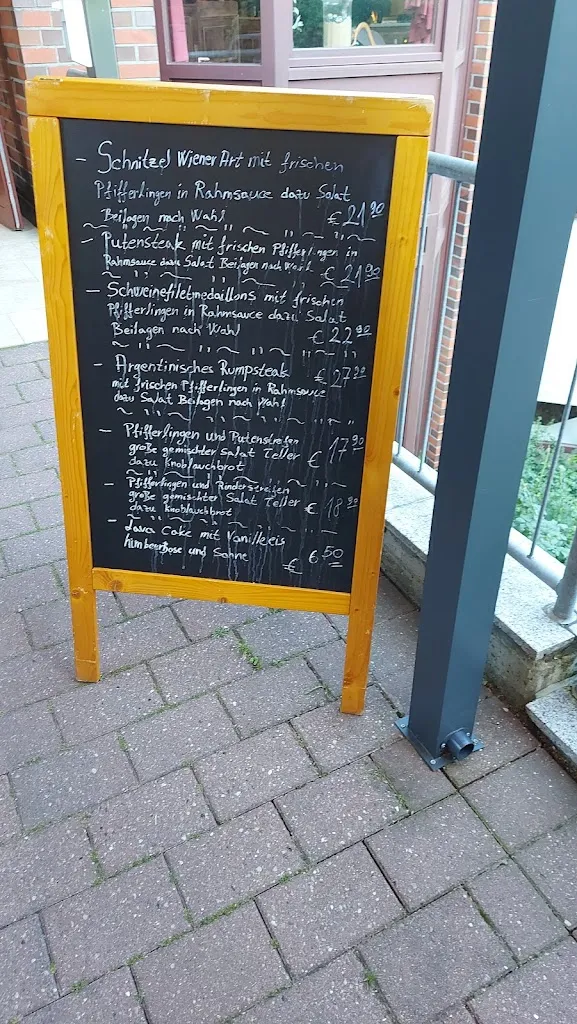 - Schnitzel Wiener Art mit frischen
Pfifferlingen in Rahmsauce dazu Salat
Beilagen nach Wahl € 21,90
- Putensteak mit frischen Pfifferlingen in
Rahmsauce dazu Salat Beilagen nach Wahl € 21,90
- Schweinefiletmedaillons mit frischen
Pfifferlingen in Rahmsauce dazu Salat
Beilagen nach Wahl € 22,90
- Argentinisches Rumpsteak € 27,90
mit frischen Pfifferlingen in Rahmsauce
dazu Salat Beilagen nach Wahl
- Pfifferlingen und Putenstreifen
große gemischter Salat Teller € 17,90
dazu Knoblauchbrot
- Pfifferlingen und Rinderstreifen
große gemischter Salat Teller € 18,90
dazu Knoblauchbrot
- Lava Cake mit Vanilleeis
himbeersose und Sahne € 6,50